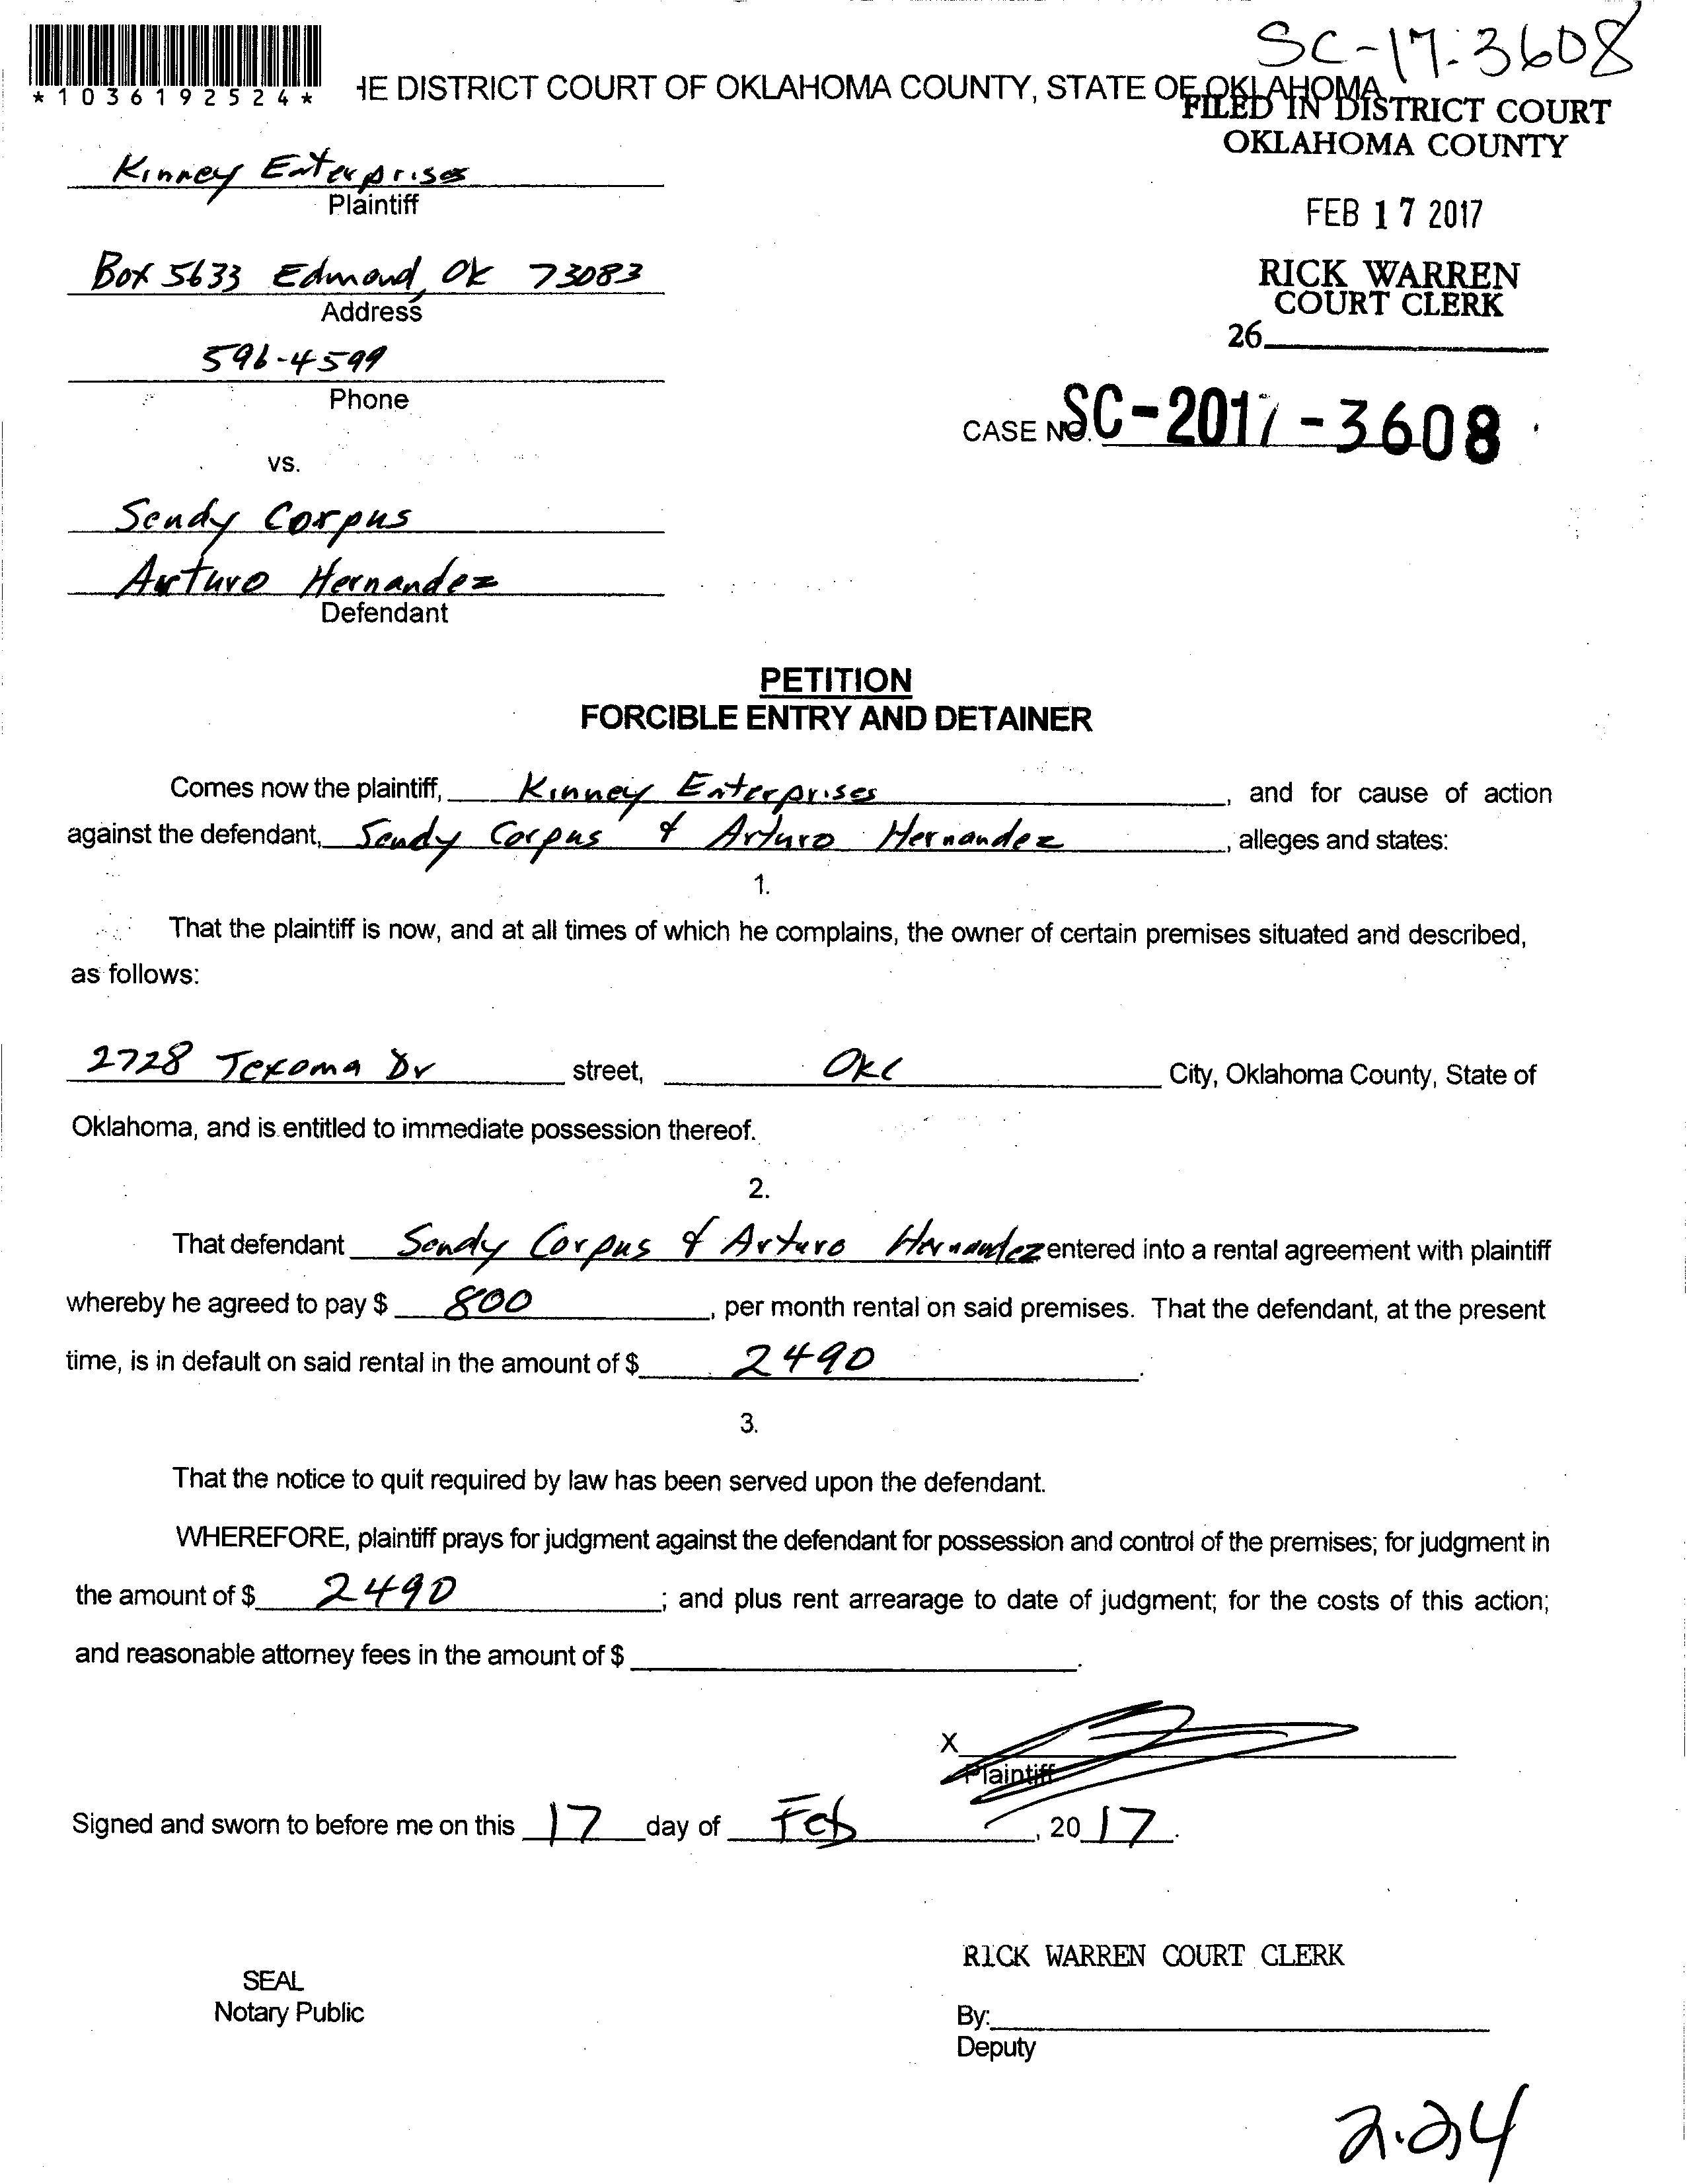 SC-17-3608
*1036192524*
HE DISTRICT COURT OF OKLAHOMA COUNTY, STATE OF OKLAHOMA
FILED IN DISTRICT COURT
OKLAHOMA COUNTY
Kinney Enterprises
Plaintiff
FEB 17 2017
Box 5633 Edmond, OK 73083
Address
RICK WARREN
COURT CLERK
26
596-4599
Phone
CASE NO. SC-2017-3608
vs.
Sendy Corpus
Arturo Hernandez
Defendant
PETITION
FORCIBLE ENTRY AND DETAINER
Comes now the plaintiff, Kinney Enterprises, and for cause of action
against the defendant, Sendy Corpus & Arturo Hernandez, alleges and states:
1.
That the plaintiff is now, and at all times of which he complains, the owner of certain premises situated and described,
as follows:
2728 Texoma Dr street, OKC City, Oklahoma County, State of
Oklahoma, and is entitled to immediate possession thereof.
2.
That defendant Sendy Corpus & Arturo Hernandez entered into a rental agreement with plaintiff
whereby he agreed to pay $ 800, per month rental on said premises. That the defendant, at the present
time, is in default on said rental in the amount of $ 2490.
3.
That the notice to quit required by law has been served upon the defendant.
WHEREFORE, plaintiff prays for judgment against the defendant for possession and control of the premises; for judgment in
the amount of $ 2490; and plus rent arrearage to date of judgment; for the costs of this action;
and reasonable attorney fees in the amount of $ .
X
Plaintiff
Signed and sworn to before me on this 17 day of Feb, 20 17.
RICK WARREN COURT CLERK
SEAL
Notary Public
By:
Deputy
2.24